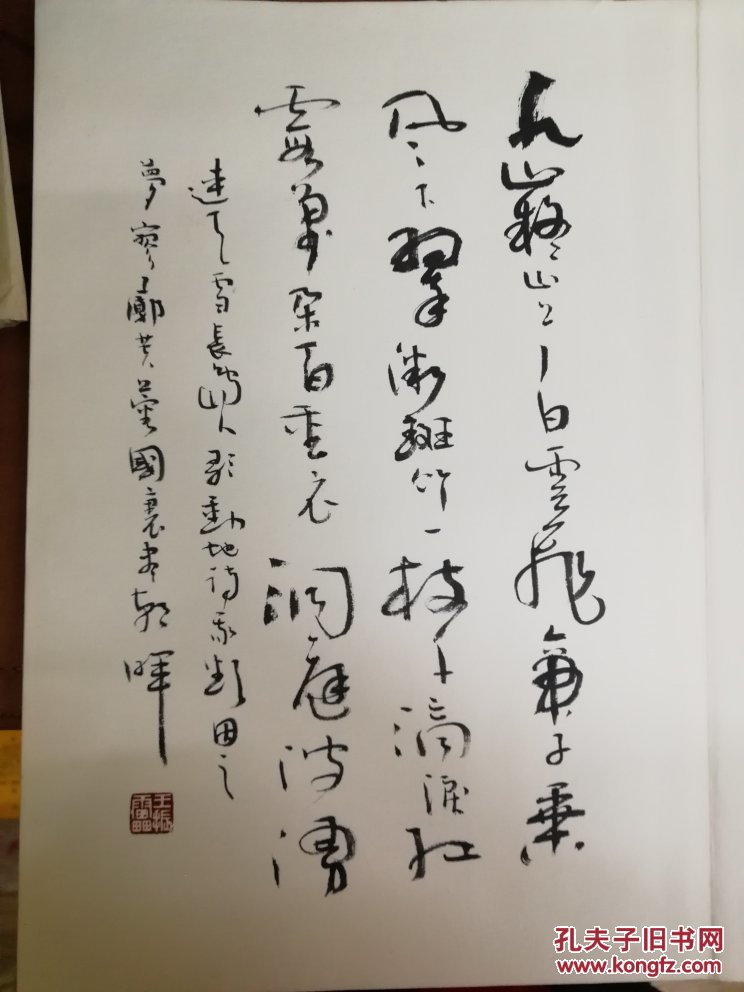 九嶷山上白雲飛帝子乘
風下翠微斑竹一枝千滴淚紅
霞萬朵百重衣洞庭波湧
連天雪長島人歌動地詩我欲因之
夢寥廓芙蓉國裏盡朝暉
孔夫子旧书网
www.kongfz.com